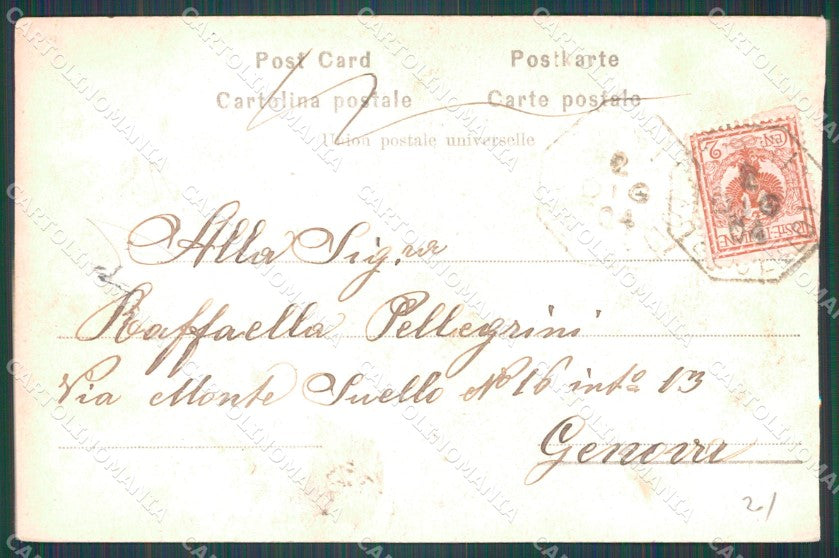 Post Card Postkarte
Cartolina postale Carte postale
Union postale universelle
CENT. 2
POSTE ITALIANE
2
DIC
04
Alla Sig.ra
Raffaella Pellegrini
Via Monte Suello No 16 into 13
Genova
2/
CARTOLINOMANIA